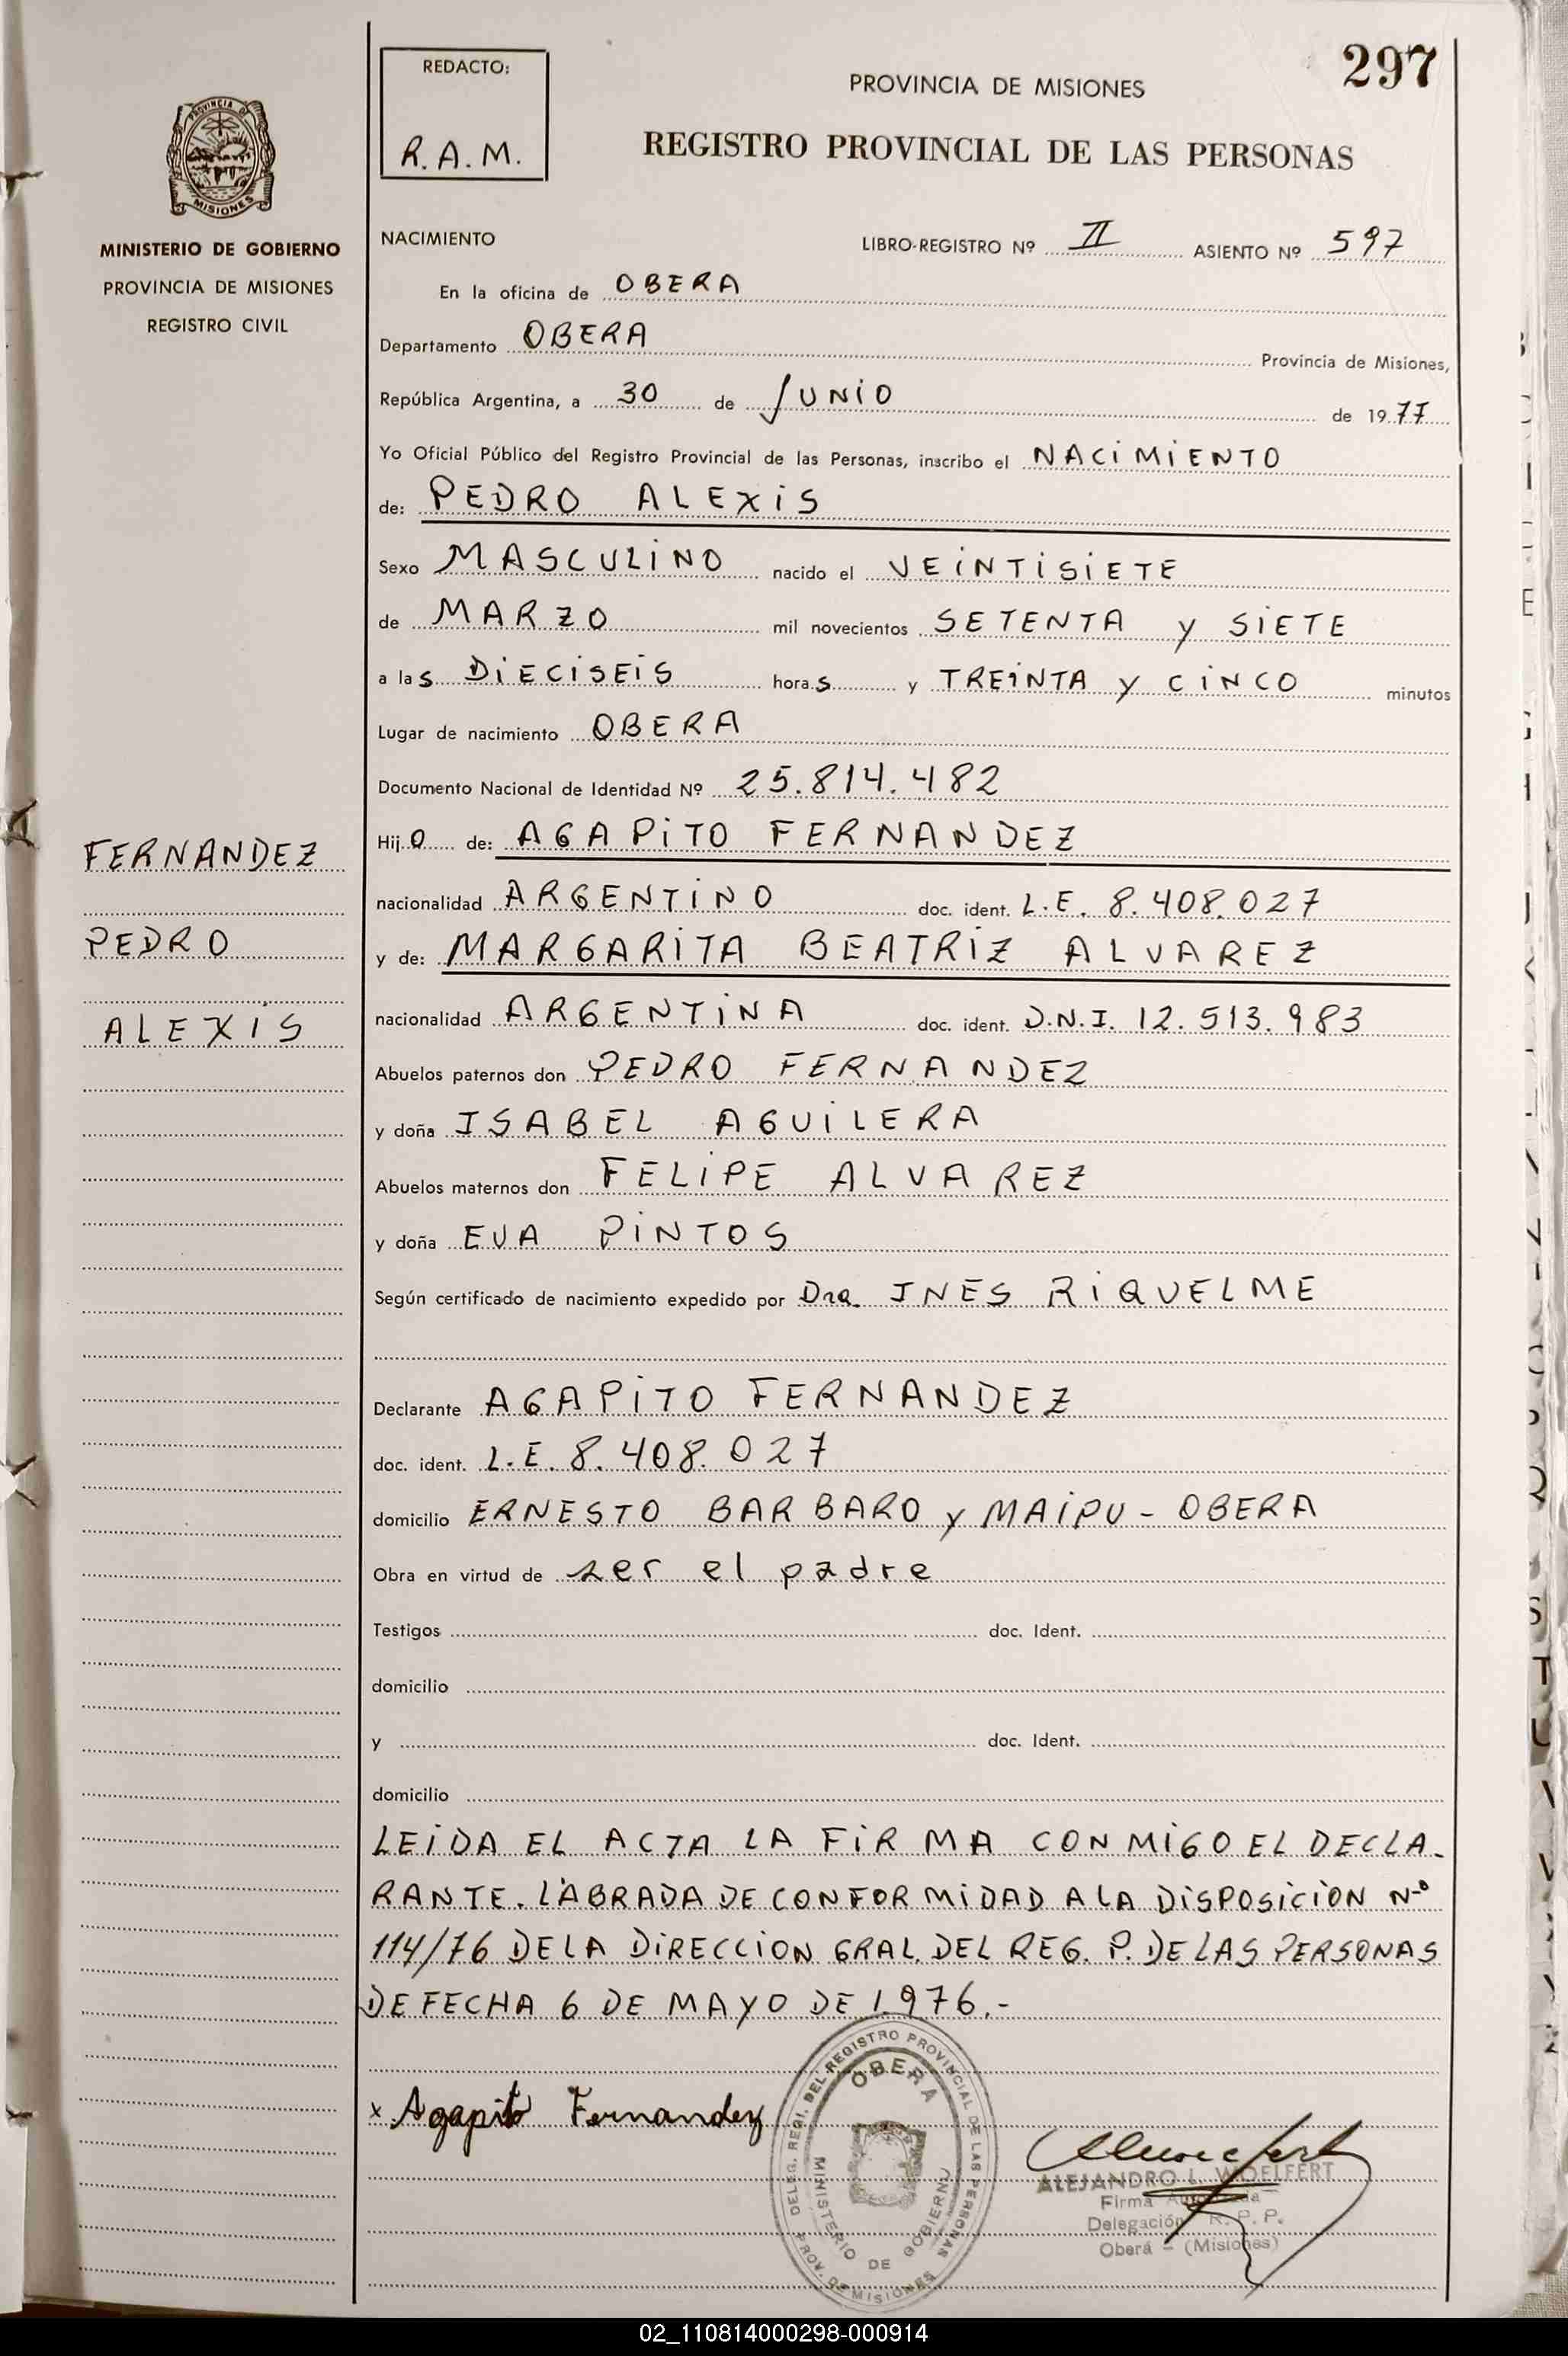 REDACTO:
R.A.M.
297
PROVINCIA DE MISIONES
REGISTRO PROVINCIAL DE LAS PERSONAS
PROVINCIA DE
MISIONES
MINISTERIO DE GOBIERNO
PROVINCIA DE MISIONES
REGISTRO CIVIL
NACIMIENTO LIBRO-REGISTRO Nº II ASIENTO Nº 597
En la oficina de OBERA
Departamento OBERA Provincia de Misiones,
República Argentina, a 30 de JUNIO de 1977
Yo Oficial Público del Registro Provincial de las Personas, inscribo el NACIMIENTO
de: PEDRO ALEXIS
Sexo MASCULINO nacido el VEINTISIETE
de MARZO mil novecientos SETENTA y SIETE
a las DIECISEIS horas y TREINTA y CINCO minutos
Lugar de nacimiento OBERA
Documento Nacional de Identidad Nº 25.814.482
Hijo de: AGAPITO FERNANDEZ
nacionalidad ARGENTINO doc. ident. L.E. 8.408.027
y de: MARGARITA BEATRIZ ALVAREZ
nacionalidad ARGENTINA doc. ident. D.N.I. 12.513.983
Abuelos paternos don PEDRO FERNANDEZ
y doña ISABEL AGUILERA
Abuelos maternos don FELIPE ALVAREZ
y doña EVA PINTOS
Según certificado de nacimiento expedido por Dra. INES RIQUELME
Declarante AGAPITO FERNANDEZ
doc. ident. L.E. 8.408.027
domicilio ERNESTO BARBARO y MAIPU - OBERA
Obra en virtud de ser el padre
Testigos doc. Ident.
domicilio
y doc. Ident.
domicilio
LEIDA EL ACTA LA FIRMA CONMIGO EL DECLA-
RANTE. LABRADA DE CONFORMIDAD A LA DISPOSICION Nº
114/76 DE LA DIRECCION GRAL. DEL REG. P. DE LAS PERSONAS
DE FECHA 6 DE MAYO DE 1.976.-
FERNANDEZ
PEDRO
ALEXIS
x Agapito Fernandez
DELEG. REGI. DEL REGISTRO PROVINCIAL DE LAS PERSONAS
OBERA
MINISTERIO DE GOBIERNO
PROV. DE MISIONES
ALEJANDRO L. WOELFERT
Firma Autorizada
Delegación R. P. P.
Oberá - (Misiones)
02_110814000298-000914